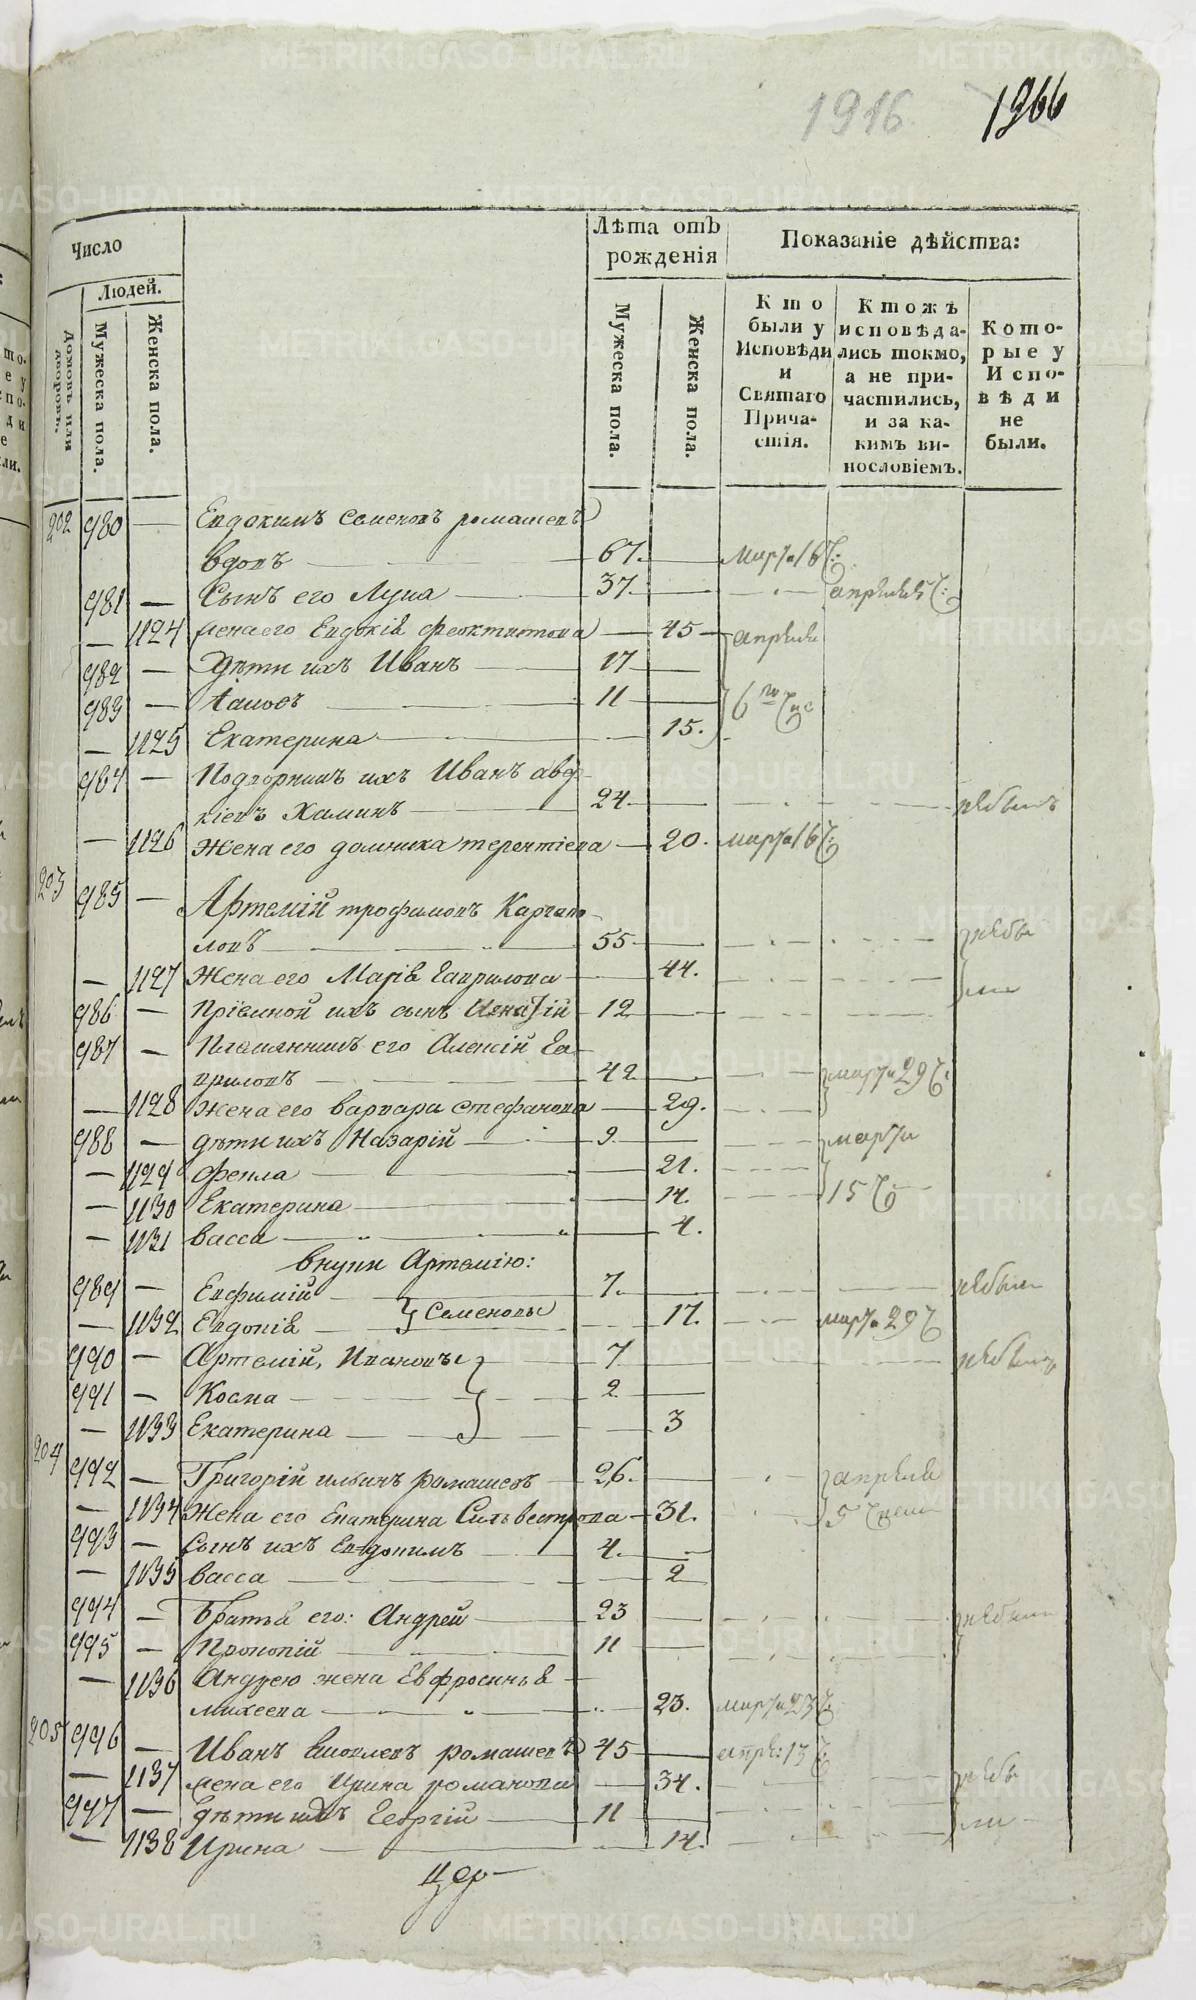 1916
1966
Число
Людей.
Домовъ или дворовъ.
Мужеска пола.
Женска пола.
Лѣта отъ рожденія
Мужеска пола.
Женска пола.
Показаніе дѣйства:
Кто были у Исповѣди и Святаго Прича- стія.
Ктожъ исповѣда- лись токмо, а не при- частились, и за ка- кимъ ви- нословіемъ.
Кото- рые у Испо- вѣди не были.
202 980 — Евдокимъ Семеновъ ромашевъ
вдовъ 67. марта 16
981 — Сынъ его Лука 37. апреля
— 1124 жена его Евдокія феоктистова 45 апреля
982 — Дѣти ихъ Иванъ 17
983 — 11 6го
— 1125 Екатерина 15.
984 — Подворникъ ихъ Иванъ авд-
кіевъ Хаминъ 24. небылъ
— 1126 Жена его домника терентіева 20. марта 16
203 985 — Артемій трофимовъ Каргапо-
ловъ 55 небы
— 1127 Жена его Марія Гаврилова 44. ли
986 — Пріемной ихъ сынъ Игнатій 12
987 — Племянникъ его Алексій Га-
вриловъ 42 марта 29
— 1128 Жена его варвара стефанова 29.
988 — дѣти ихъ Назарій 9 марта
— 1129 Фекла 21.
— 1130 Екатерина 14. 15
— 1131 васса 4.
внуки Артемію:
989 — Евфимій 7. небыли
— 1132 Евдокія } Семеновы 17. марта 29
990 — Артемій, Ивановы 7 небыли
991 — Косма 2
— 1133 Екатерина 3
204 992 — Григорій ильинъ ромашевъ 26. апреля
— 1134 Жена его Екатерина Сильвестрова 31. 5
993 — Сынъ ихъ Евдокимъ 4.
— 1135 васса 2
994 — Братья его: Андрей 23 небыли
995 — Прокопій 11
— 1136 Андрею жена Евфросинья
михеева 23. марта 23
205 996 — Иванъ Яковлевъ ромашевъ 45 апре: 13
— 1137 жена его Ирина романова 34. небы
997 — Дѣти ихъ Георгій 11 ли
— 1138 Ирина 14.
METRIKI.GASO-URAL.RU